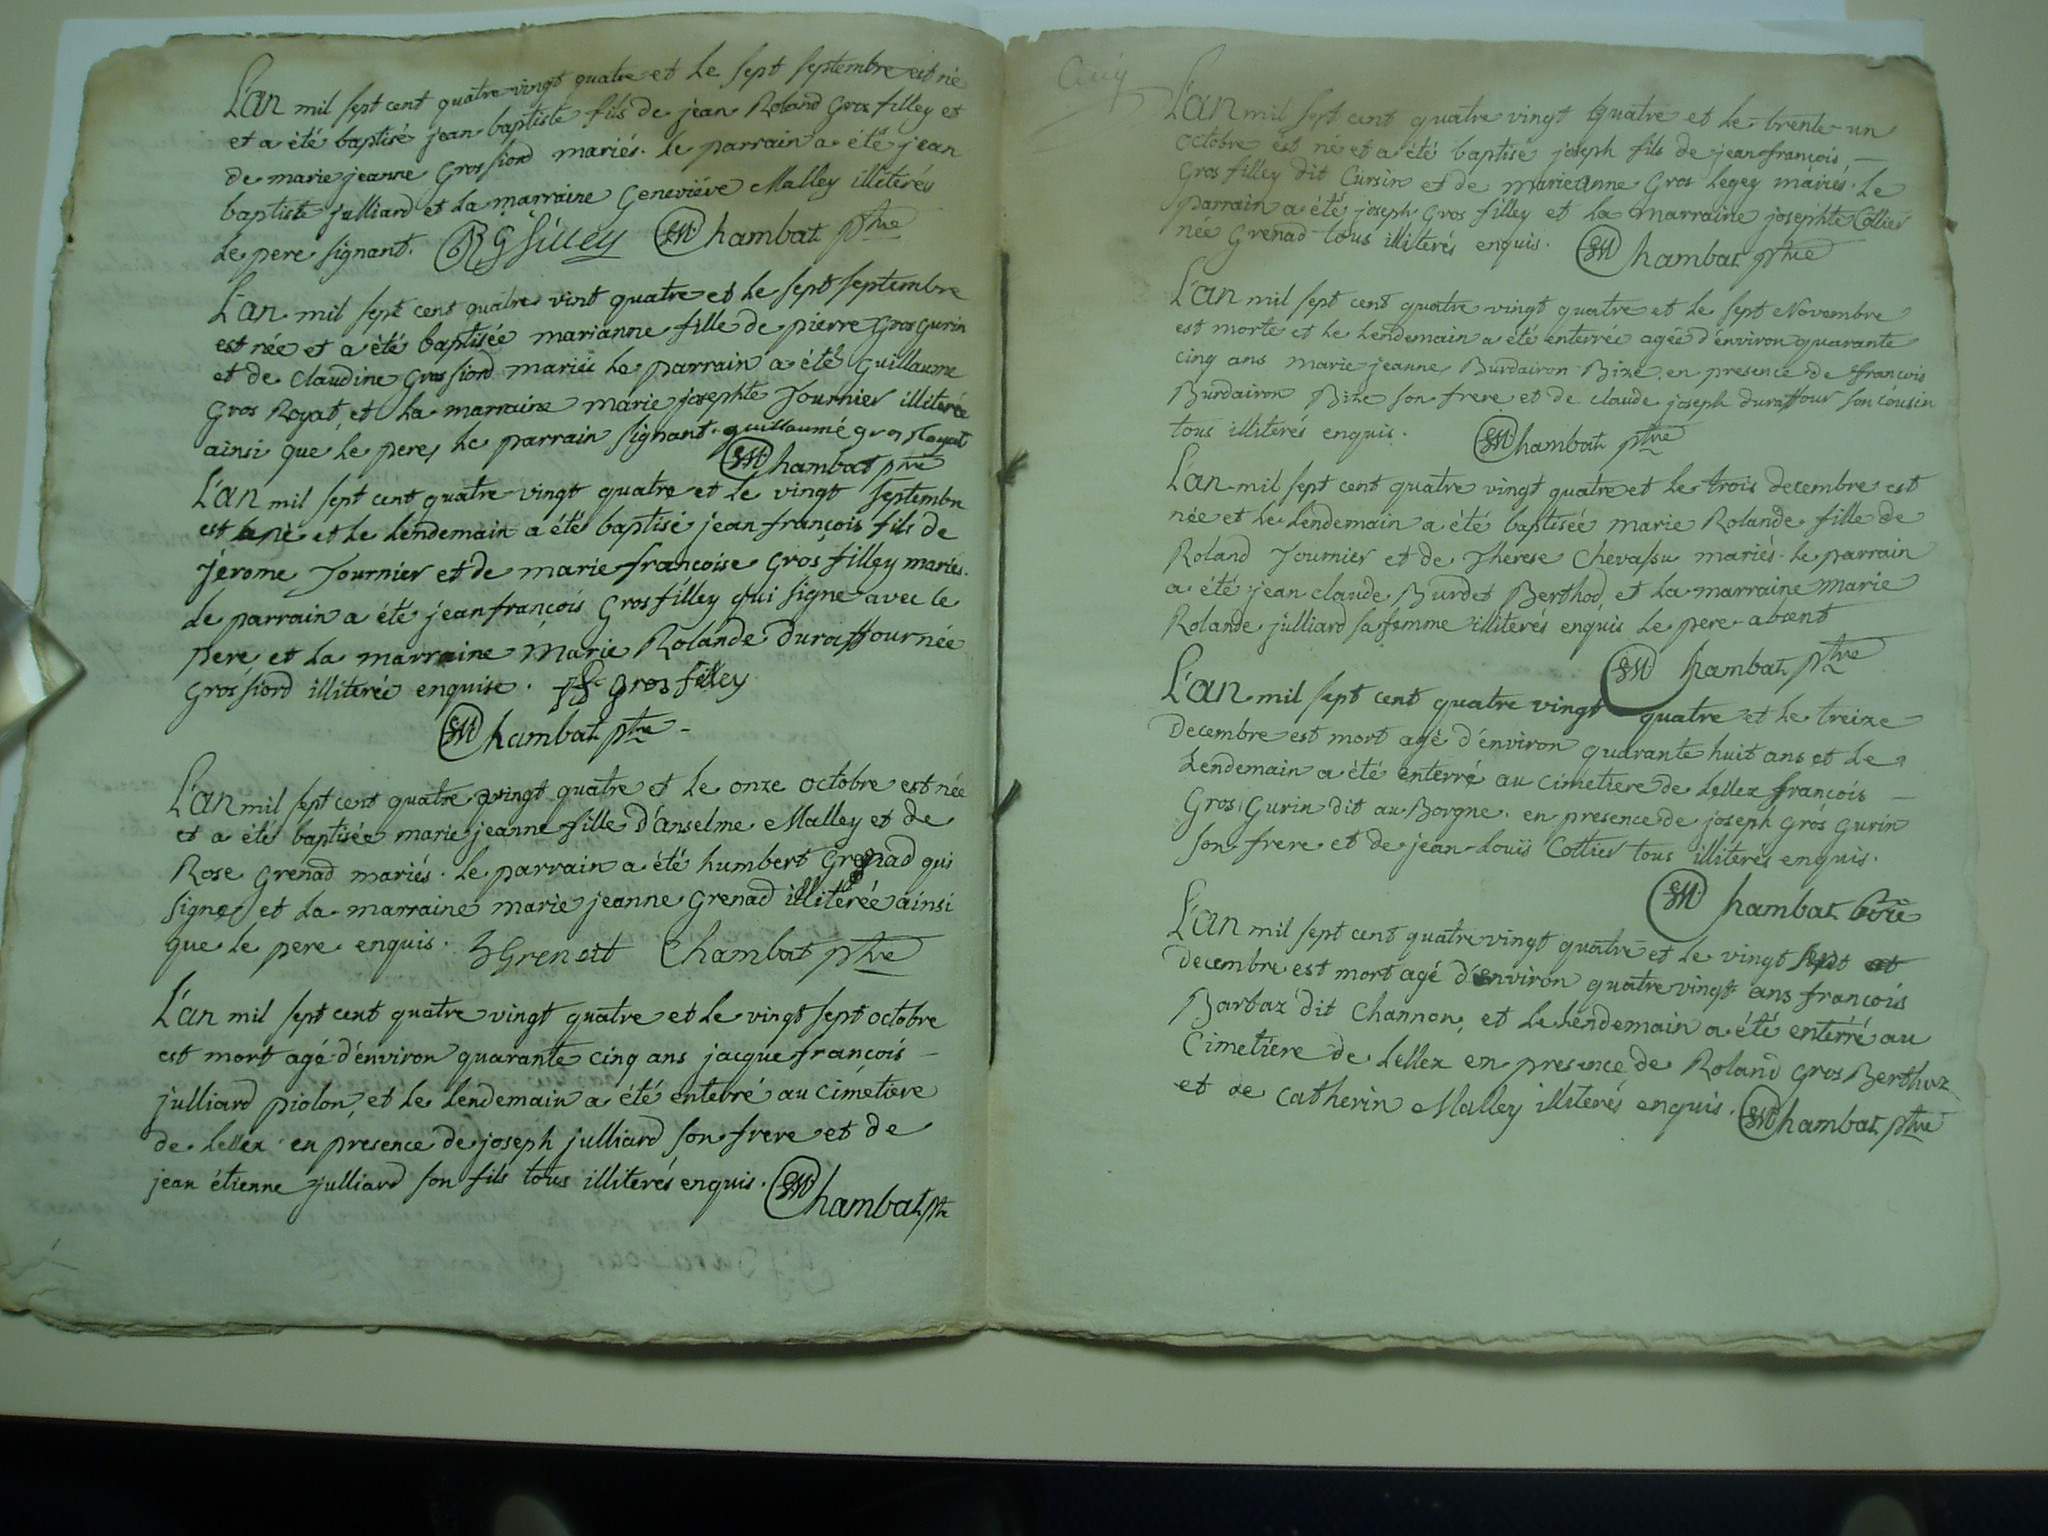 L'an mil sept cent quatre vingt quatre et le sept septembre est né
et a été baptisé jean baptiste fils de jean Roland Gros filley et
de marie jeanne Gros fiord mariés. le parrain a été jean
baptiste julliard et la marraine Geneviéve Malley illiterés
le pere signant. RG filley Chambat ptre
L'an mil sept cent quatre vint quatre et le sept septembre
est née et a été baptisée marianne fille de pierre Gros gurin
et de Claudine Gros fiord mariés le parrain a été Guillaume
Gros Royat, et la marraine marie josephte Tournier illiterée
ainsi que le pere, le parrain signant. guillaumé gros Royat
Chambat ptre
L'an mil sept cent quatre vingt quatre et le vingt septembre
est né et le lendemain a été baptisé jean françois fils de
jérome Tournier et de marie françoise Gros filley mariés.
le parrain a été jean françois Gros filley qui signe avec le
pere, et la marraine Marie Rolande duraffour née
Gros fiord illiterée enquise. gros filley
Chambat ptre
L'an mil sept cent quatre vingt quatre et le onze octobre est née
et a été baptisée marie jeanne fille d'anselme Malley et de
Rose Grenad mariés. le parrain a été humbert Grenad qui
signe, et la marraine marie jeanne Grenad illitérée ainsi
que le pere enquis. hGrenat Chambat ptre
L'an mil sept cent quatre vingt quatre et le vingt sept octobre
est mort agé d'énviron quarante cinq ans jacque françois
julliard piolon, et le lendemain a été enterré au cimétiere
de Lellex en presence de joseph julliard son frere et de
jean étienne julliard son fils tous illiterés enquis. Chambat ptre
L'an mil sept cent quatre vingt quatre et le trente un
octobre est né et a été baptisé joseph fils de jean françois
Gros filley dit Cursin et de marie anne Gros legey mariés. le
parrain a été joseph Gros filley et la marraine josephte Cottier
née Grenad tous illiterés enquis. Chambat ptre
L'an mil sept cent quatre vingt quatre et le sept Novembre
est morte et le lendemain a été enterrée agée d'énviron quarante
cinq ans marie jeanne Burdairon Bize en presence de françois
Burdairon Bize son frere et de claude joseph duraffour son cousin
tous illiterés enquis. Chambat ptre
L'an mil sept cent quatre vingt quatre et le trois decembre est
née et le lendemain a été baptisée marie Rolande fille de
Roland Tournier et de Therese Chevassu mariés. le parrain
a été jean claude Burdet Berthod, et la marraine marie
Rolande julliard sa femme illiterés enquis le pere absent
Chambat ptre
L'an mil sept cent quatre vingt quatre et le treize
decembre est mort agé d'énviron quarante huit ans et le
lendemain a été enterré au cimetiere de Lellex françois
Gros Gurin dit au Borgne. en presence de joseph Gros Gurin
son frere et de jean louis Cottier tous illiterés enquis.
Chambat
L'an mil sept cent quatre vingt quatre et le vingt sept
decembre est mort agé d'énviron quatre vingt ans françois
Barbaz dit Channon, et le lendemain a été enterré au
Cimetiere de Lellex en presence de Roland Gros Berthoz
et de Catherin Malley illiterés enquis. Chambat ptre